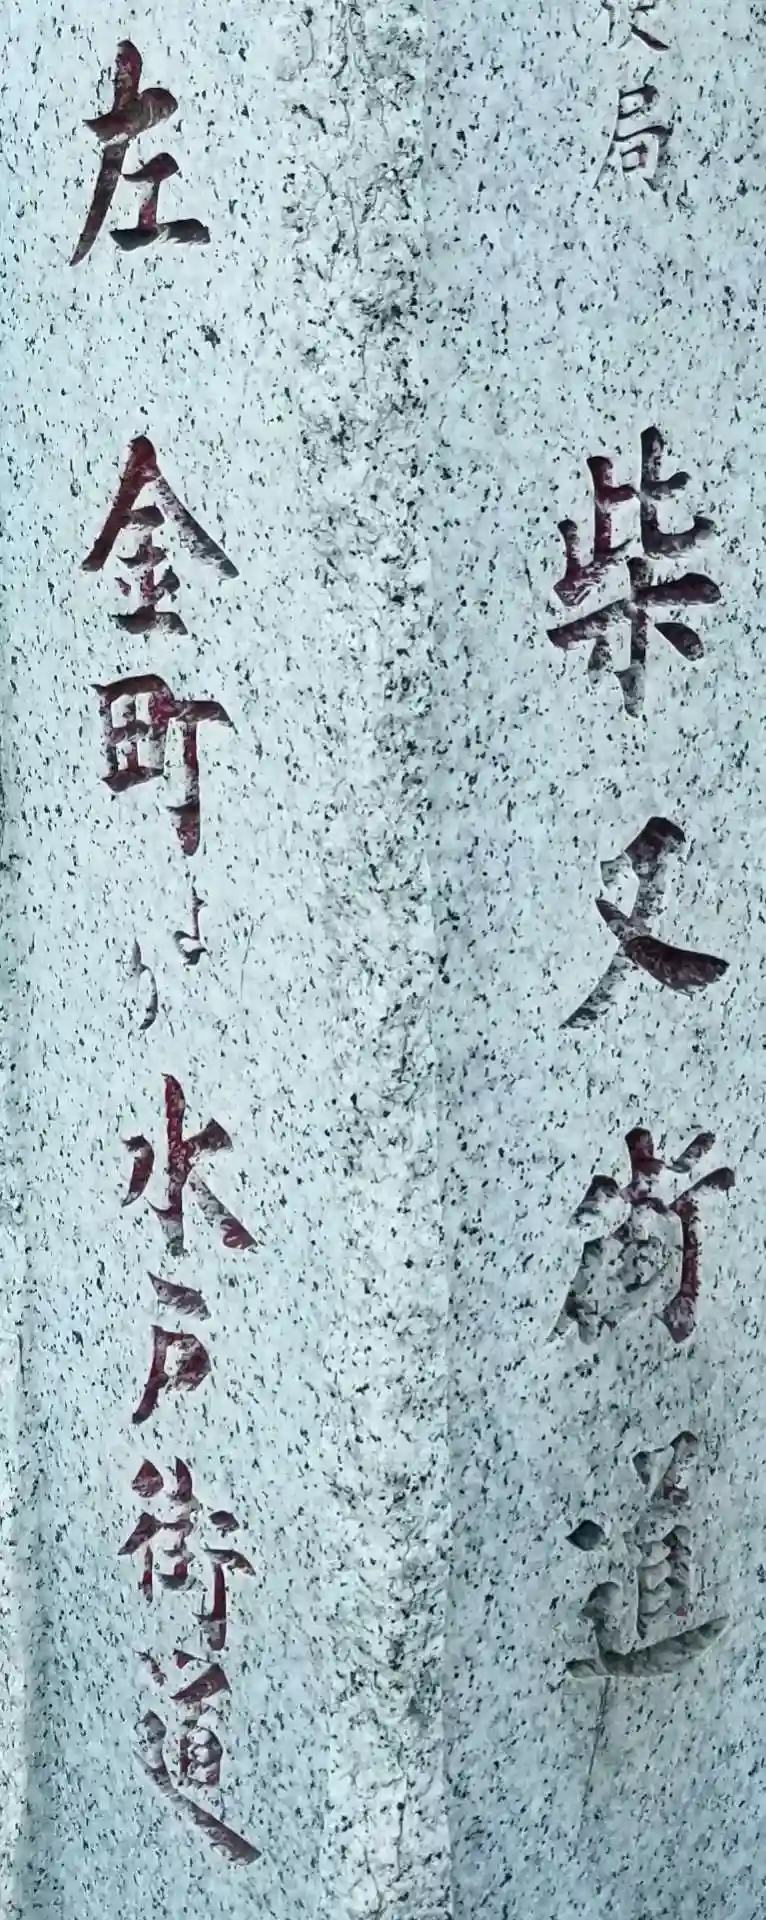 局 柴又街道
左 金町より水戸街道